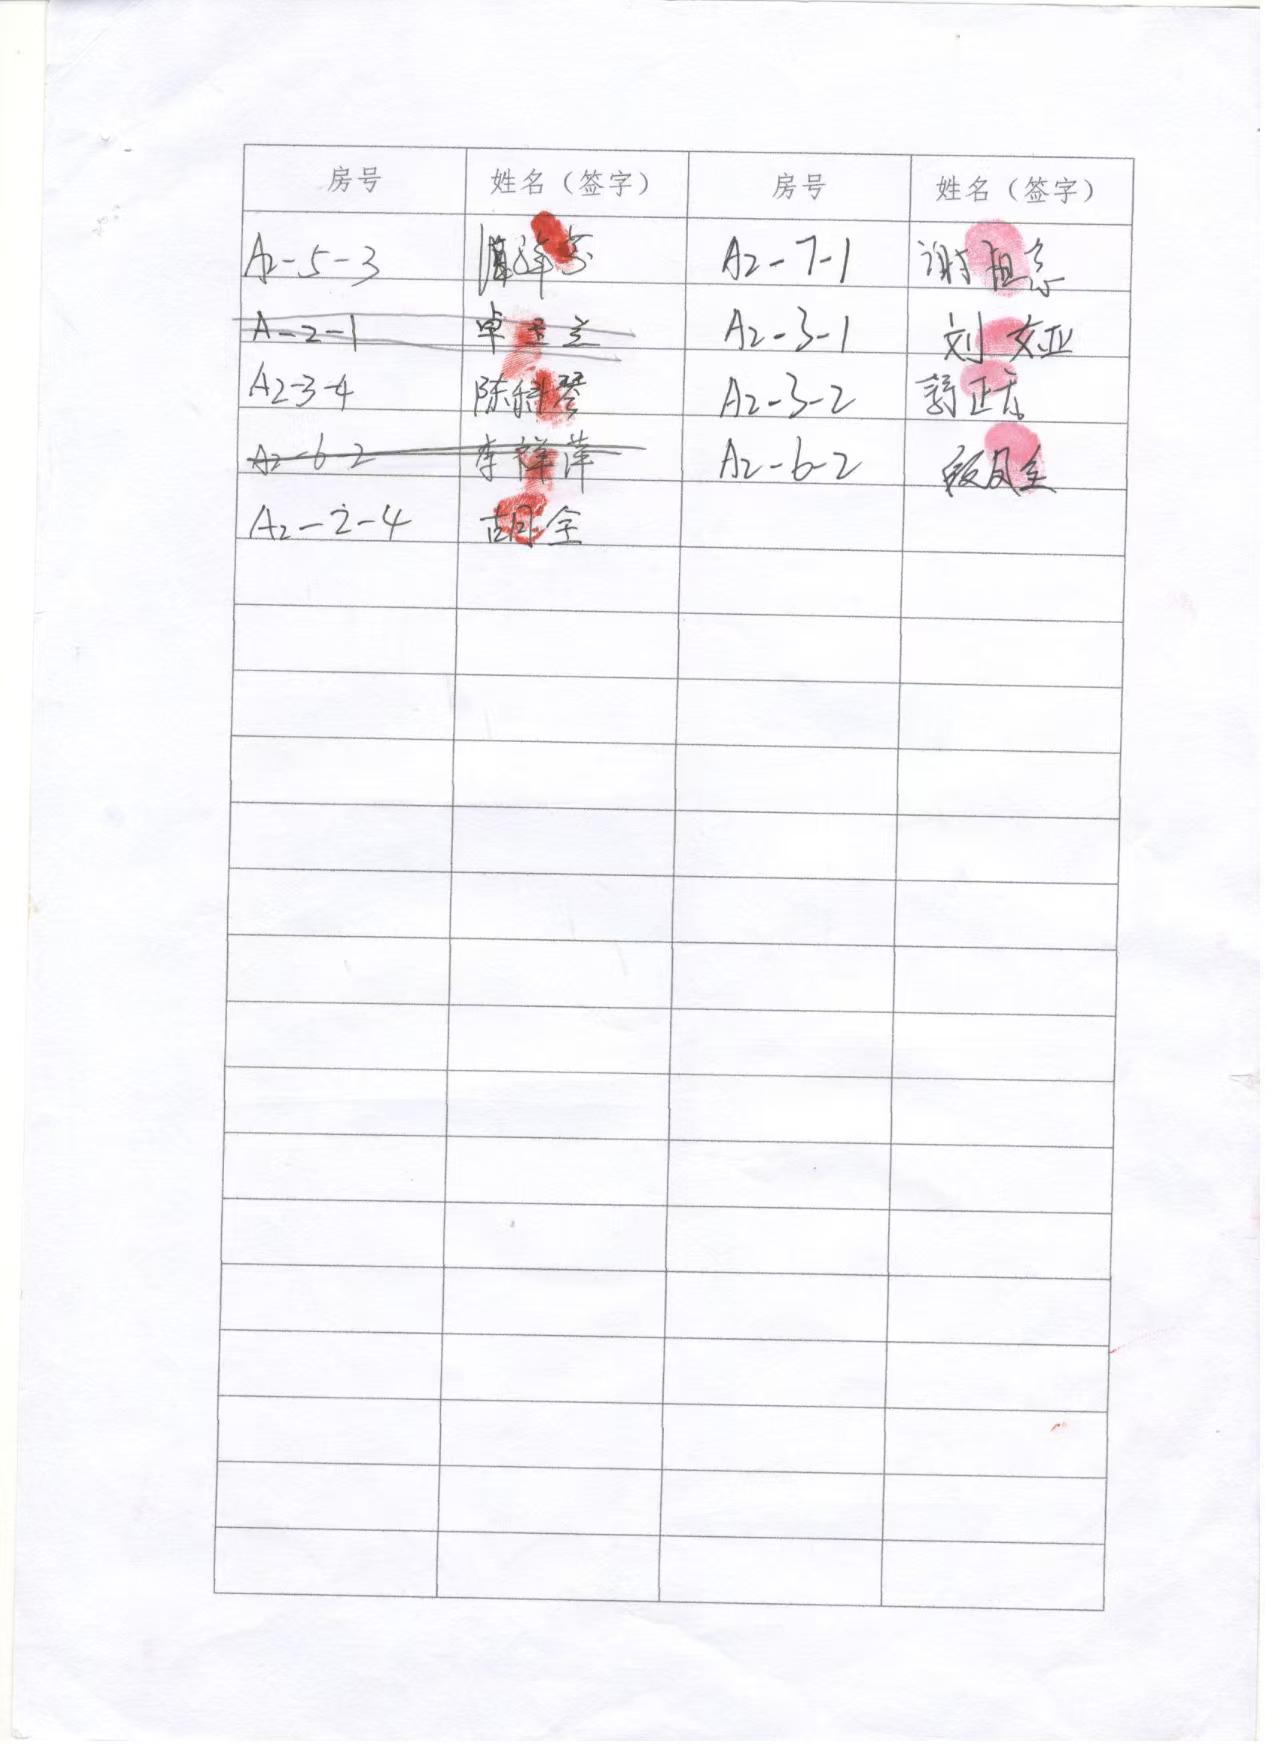 房号 姓名（签字） 房号 姓名（签字）
A2-5-3 A2-7-1 谢
A-2-1 卓玉兰 A2-3-1 刘文亚
A2-3-4 陈 琴 A2-3-2 正
A2-6-2 李祥萍 A2-6-2 段凤全
A2-2-4 胡全